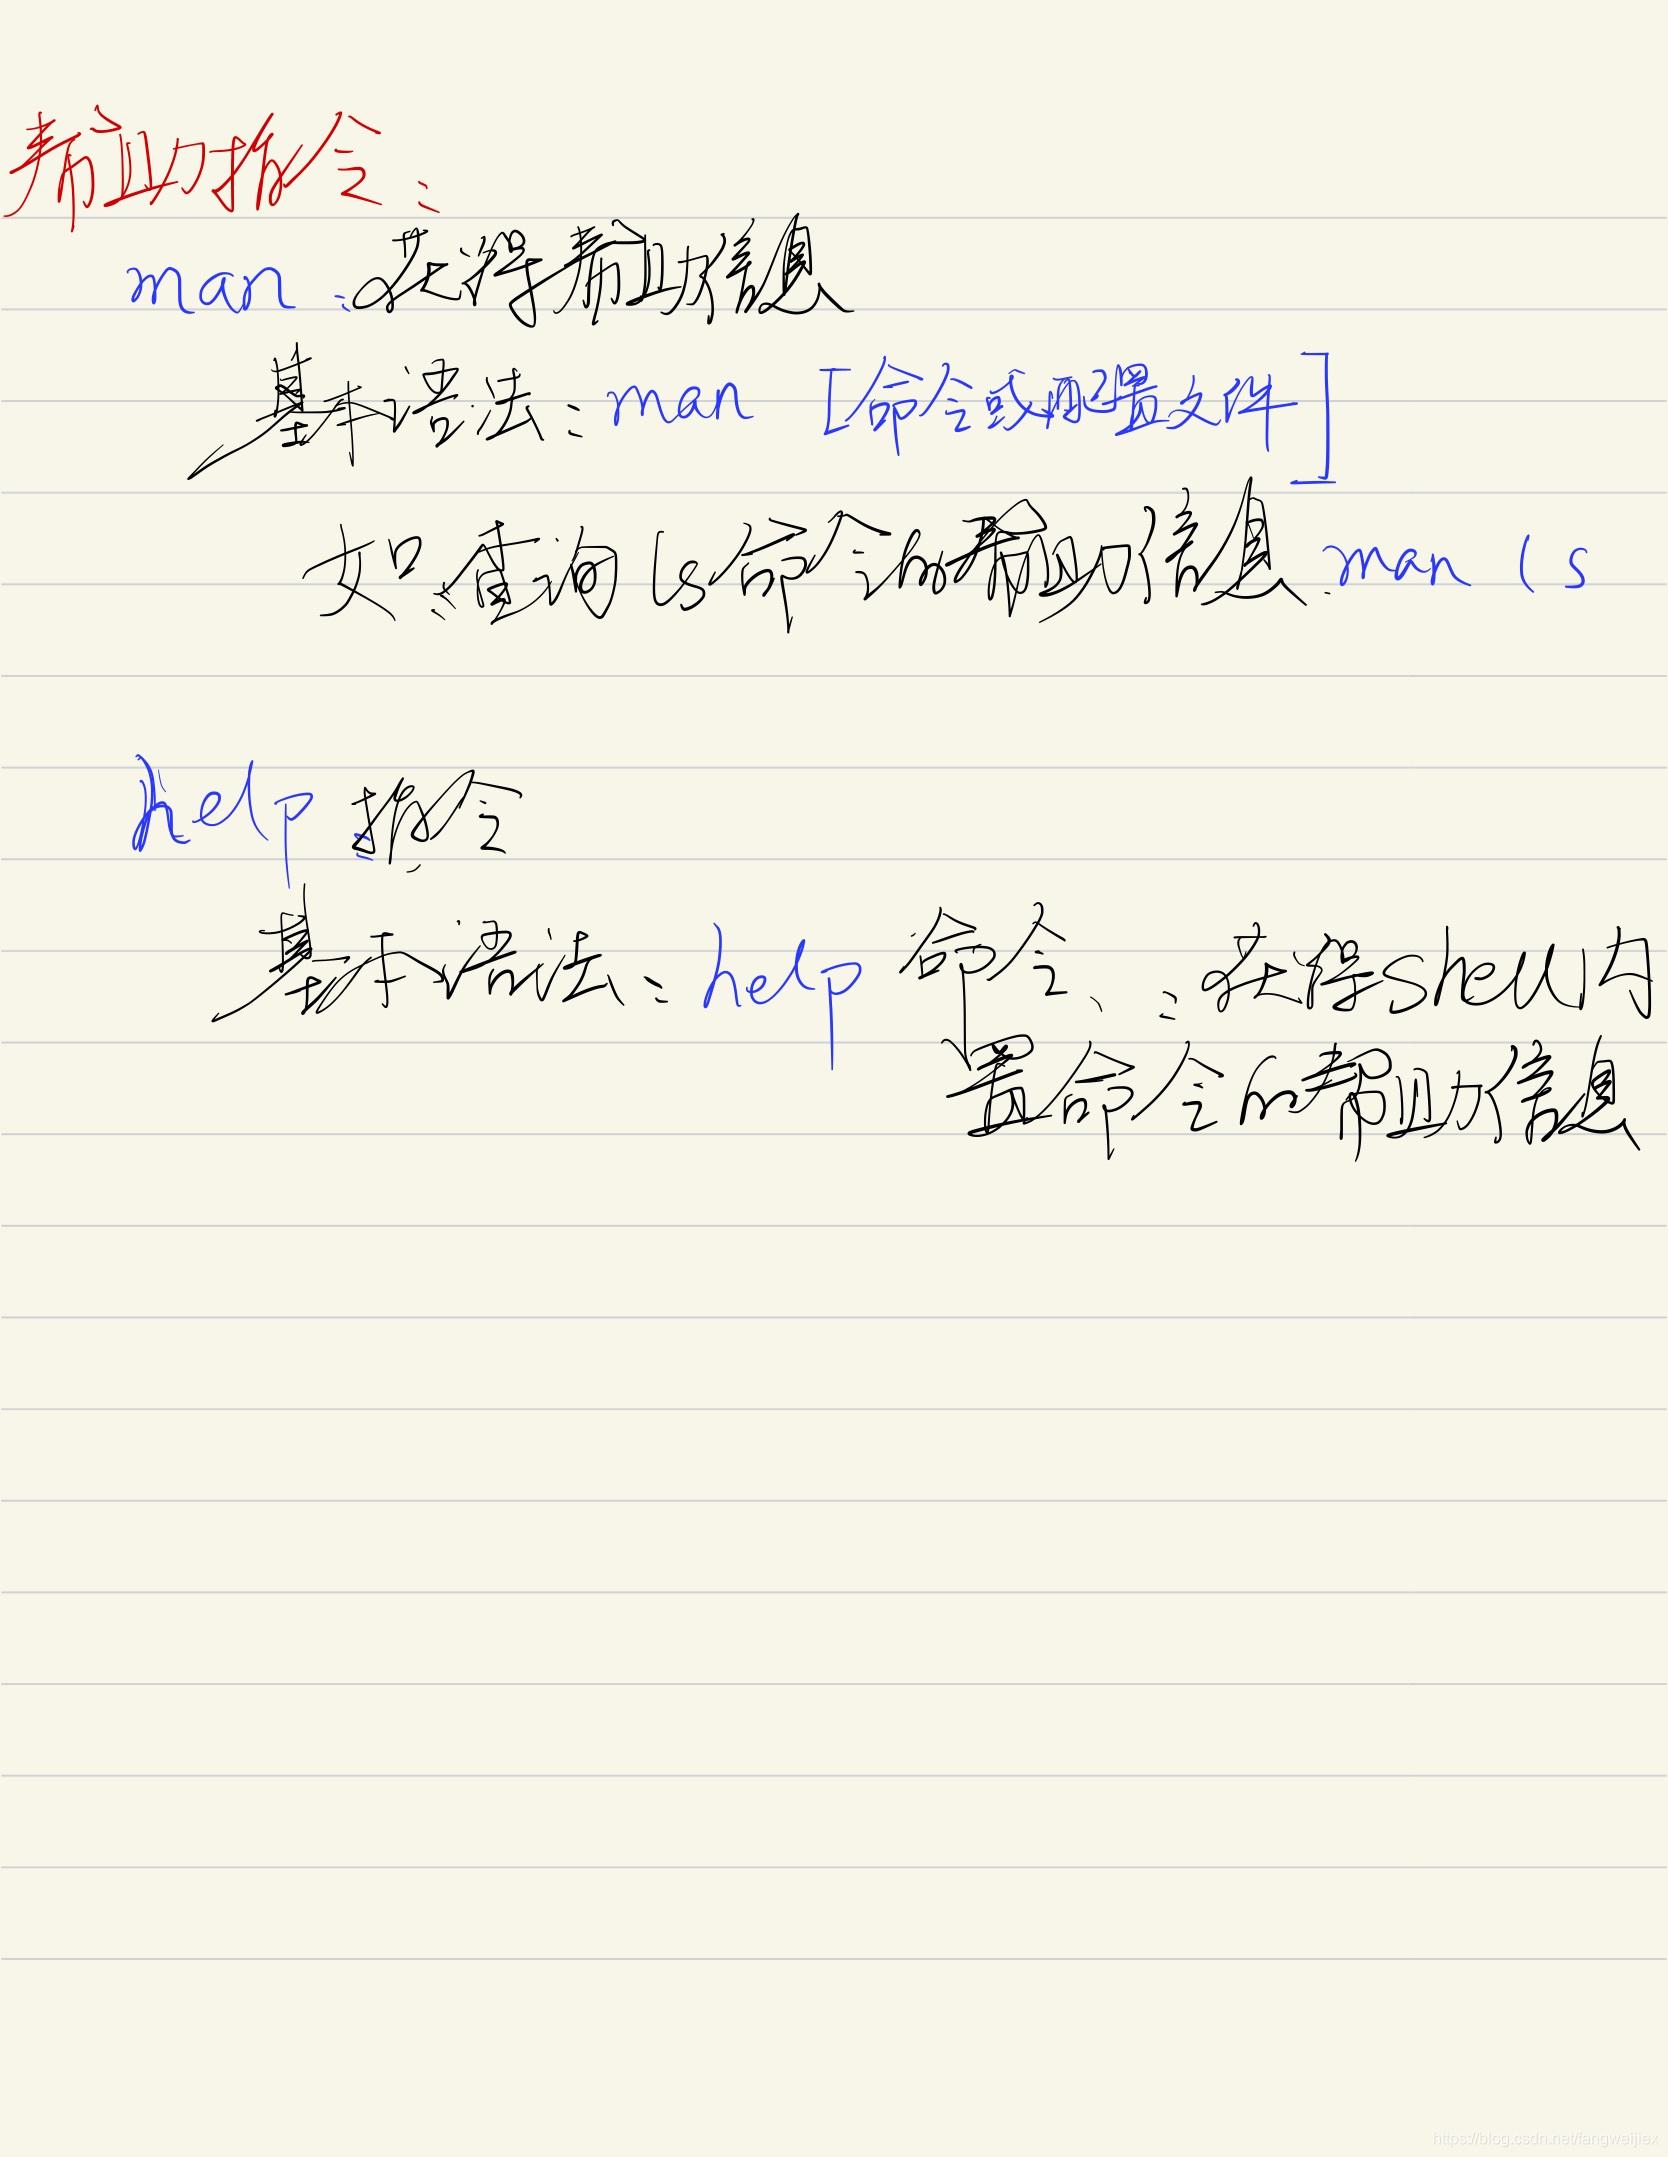 帮助指令:
man:获得帮助信息
基本语法:man [命令或配置文件]
如:查询ls命令的帮助信息:man ls
help:指令
基本语法:help 命令、:获得shell内
置命令的帮助信息
https://blog.csdn.net/fangweijiex